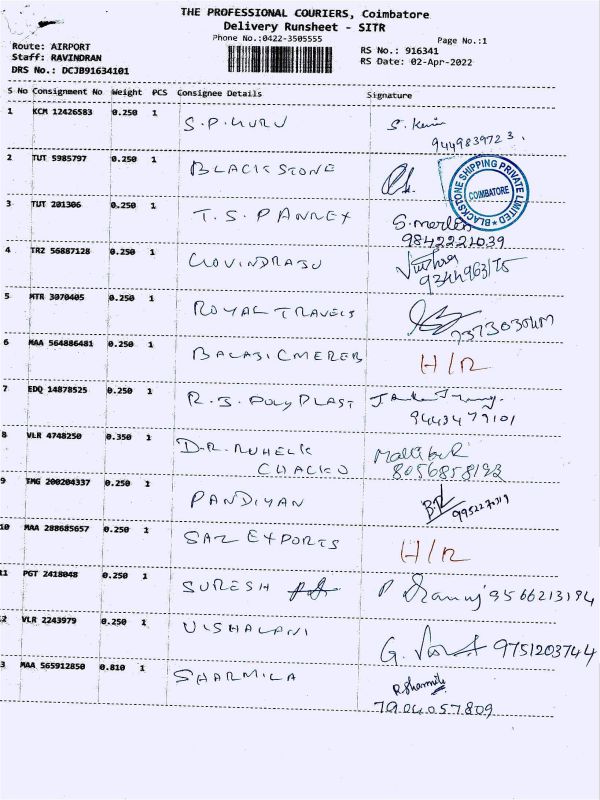 THE PROFESSIONAL COURIERS, Coimbatore
Delivery Runsheet - SITR
Phone No.:0422-3505555
Page No.:1
Route: AIRPORT
Staff: RAVINDRAN
DRS No.: DCJB91634101
RS No.: 916341
RS Date: 02-Apr-2022
S No Consignment No Weight PCS Consignee Details Signature
1 KCM 12426583 0.250 1 S.P.GURU
9449839723.
2 TUT 5985797 0.250 1 BLACKSTONE
BLACKSTONE SHIPPING PRIVATE LIMITED
COIMBATORE
3 TUT 201306 0.250 1 T.S.PANNEX S.merlin
9842221039
4 TRZ 56887128 0.250 1 GOVINDRAJU
5 MTR 3070405 0.250 1 ROYAL TRAVELS
6 MAA 564886481 0.250 1 H/R
7 EDQ 14878525 0.250 1 R.J. POLYPLAST
9443479101
8 VLR 4748250 0.350 1 DR. RUHECK
CHACKO
8056858192
9 TMG 200204337 0.250 1 PANDIYAN
10 MAA 288685657 0.250 1 SAZ EXPORTS H/R
11 PGT 2418048 0.250 1 SURESH 9566213194
12 VLR 2243979 0.250 1 VISHALANI 9751203744
13 MAA 565912850 0.810 1 SHARMILA R.Sharmila
7904057809